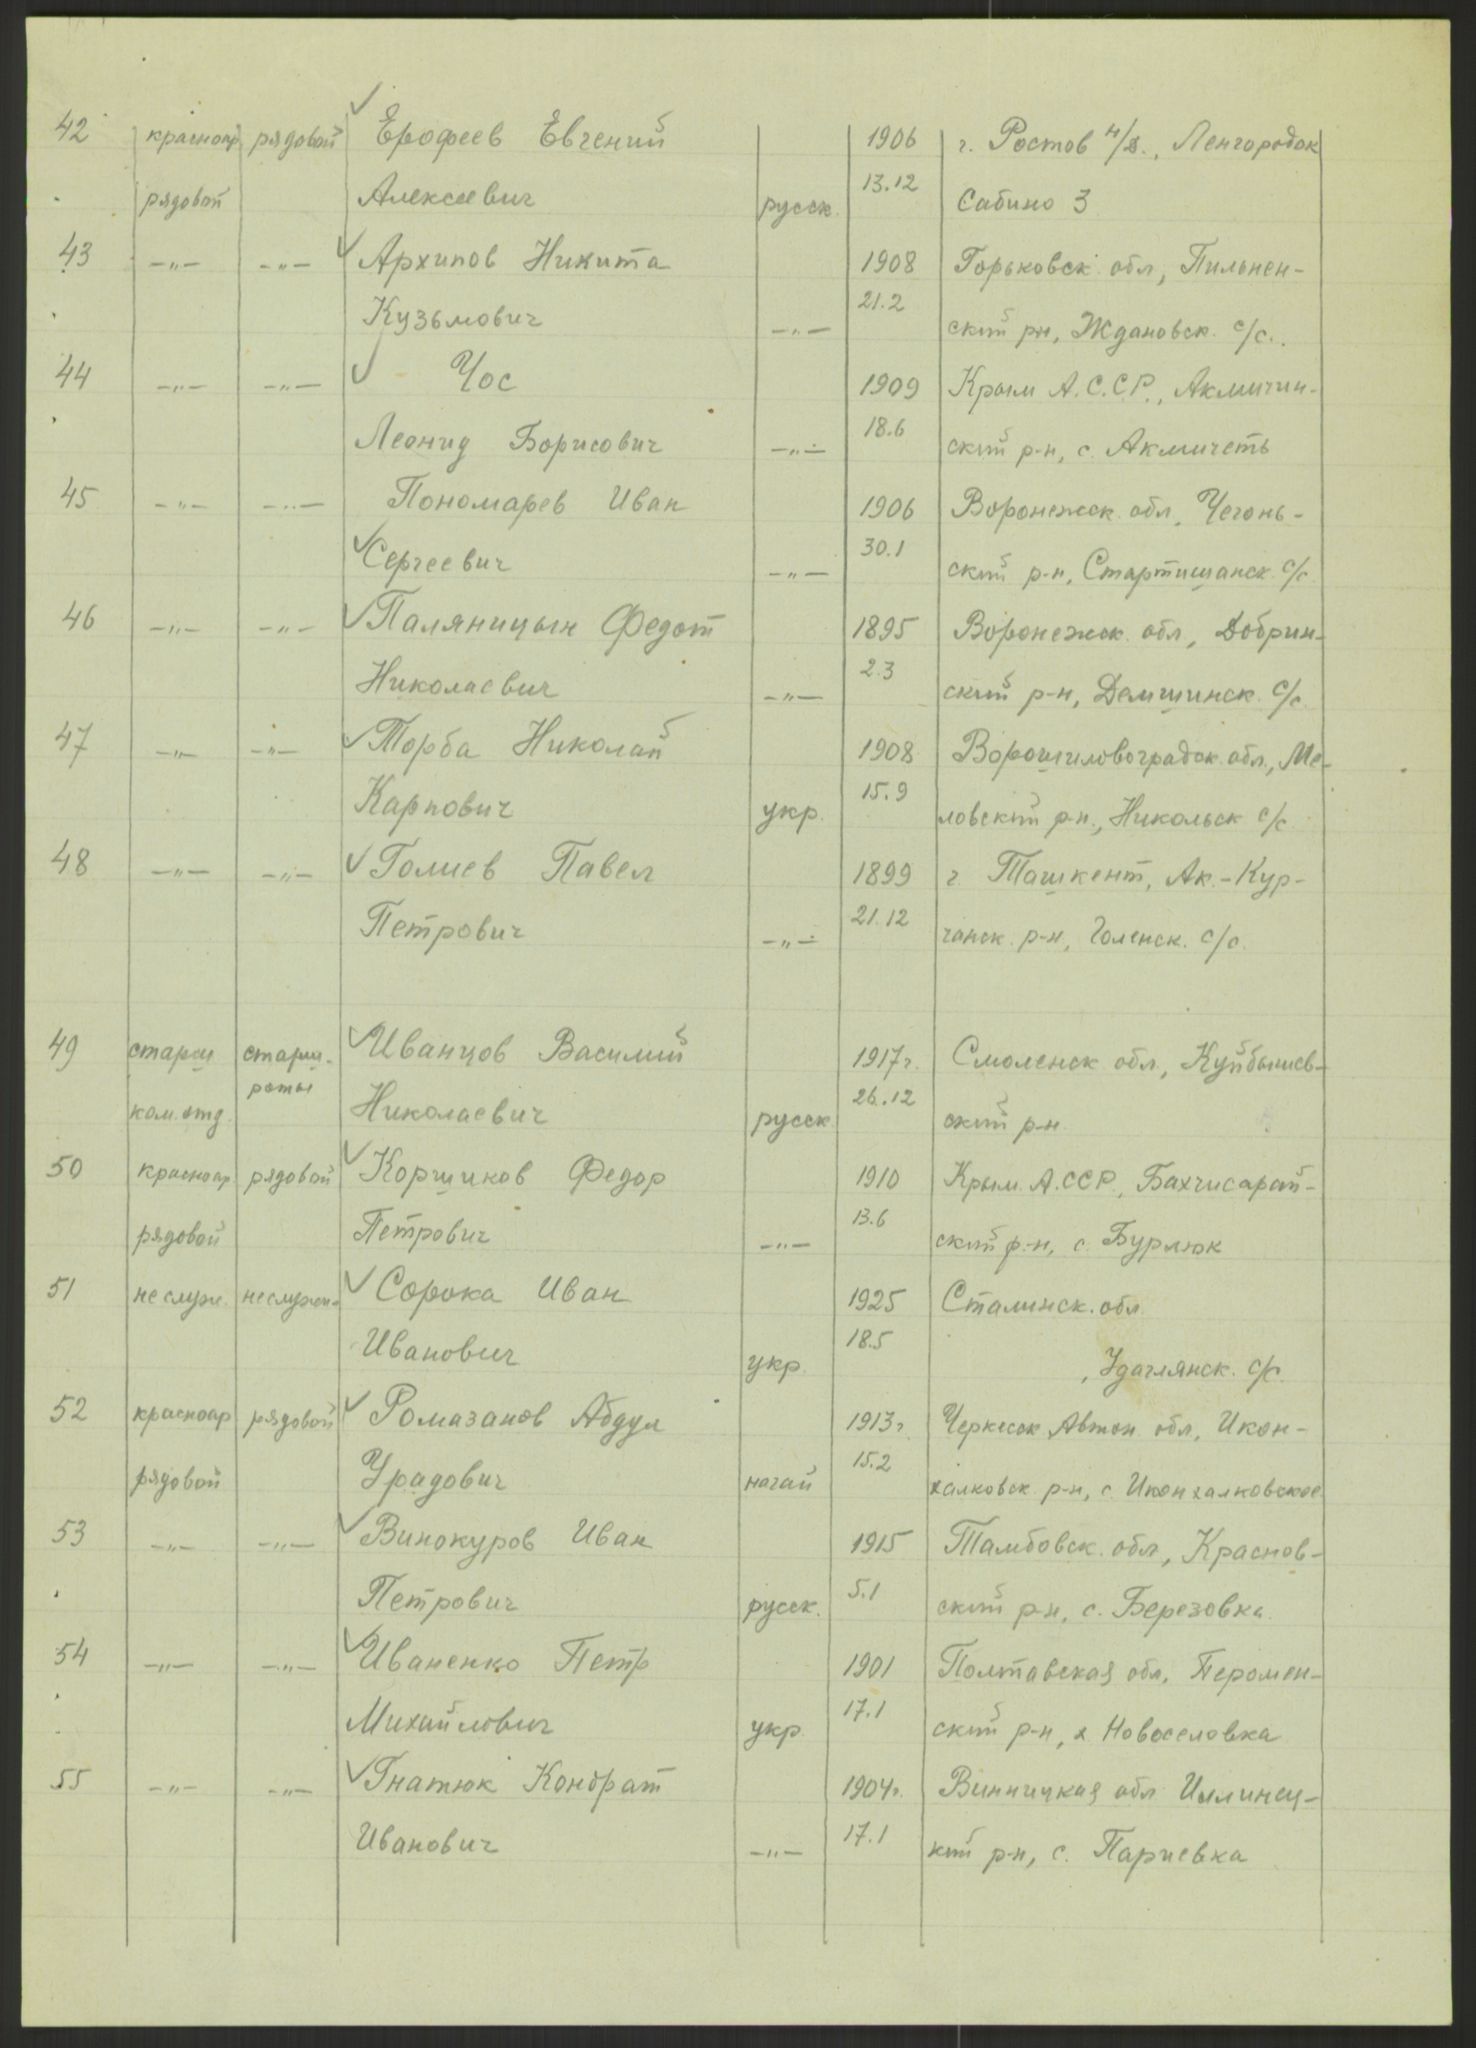 42 красноар рядовой Ерофеев Евгений 1906 г. Ростов н/д., Ленгородок
рядовой Алексеевич русск. 13.12 Сабино 3
43 -"- -"- Архипов Никита 1908 Горьковск. обл, Пильнен-
Кузьмович -"- 21.2 ский рн, Ждановск. с/с.
44 -"- -"- Чос 1909 Крым А.С.С.Р., Акмичин-
Леонид Борисович -"- 18.6 ский р-н, с. Акмичеть
45 -"- -"- Пономарев Иван 1906 Воронежск. обл, Чегонь-
Сергеевич -"- 30.1 ский р-н, Стартишанск. с/с
46 -"- -"- Паляницын Федот 1895 Воронежск. обл, Добрин-
Николаевич -"- 2.3 ский р-н, Демшинск. с/с.
47 -"- -"- Торба Николай 1908 Ворошиловоградск. обл., Ме-
Карпович укр. 15.9 ловский р-н., Никольск с/с
48 -"- -"- Голиев Павел 1899 г Ташкент, Ак.-Кур-
Петрович -"- 21.12 чанск. р-н, Голенск. с/с.
49 старш старш. Иванцов Василий 1917г. Смоленск обл., Куйбышев-
роты
ком.отд. Николаевич русск 26.12 ский р-н
50 красноар. рядовой Коршиков Федор 1910 Крым. А.ССР., Бахчисарай-
рядовой Петрович -"- 13.6 ский р-н, с. Бурлюк
51 не служ. не служен- Сорока Иван 1925 Сталинск. обл
Иванович укр. 18.5 , Удаглянск. с/с.
52 красноар рядовой Ромазанов Абдул 1913г Черкесск Автон обл, Икон-
рядовой Урадович нагай 15.2 халковск. р-н, с. Иконхалковское
53 -"- -"- Винокуров Иван 1915 Тамбовск. обл, Краснов-
Петрович русск. 5.1 ский р-н, с. Березовка.
54 -"- -"- Иваненко Петр 1901 Полтавская обл, Перомен-
Михайлович укр. 17.1 ский р-н, х Новоселовка
55 -"- -"- Гнатюк Кондрат 1904г. Винницкая обл Иллинец-
Иванович -"- 17.1 кий р-н, с. Париевка